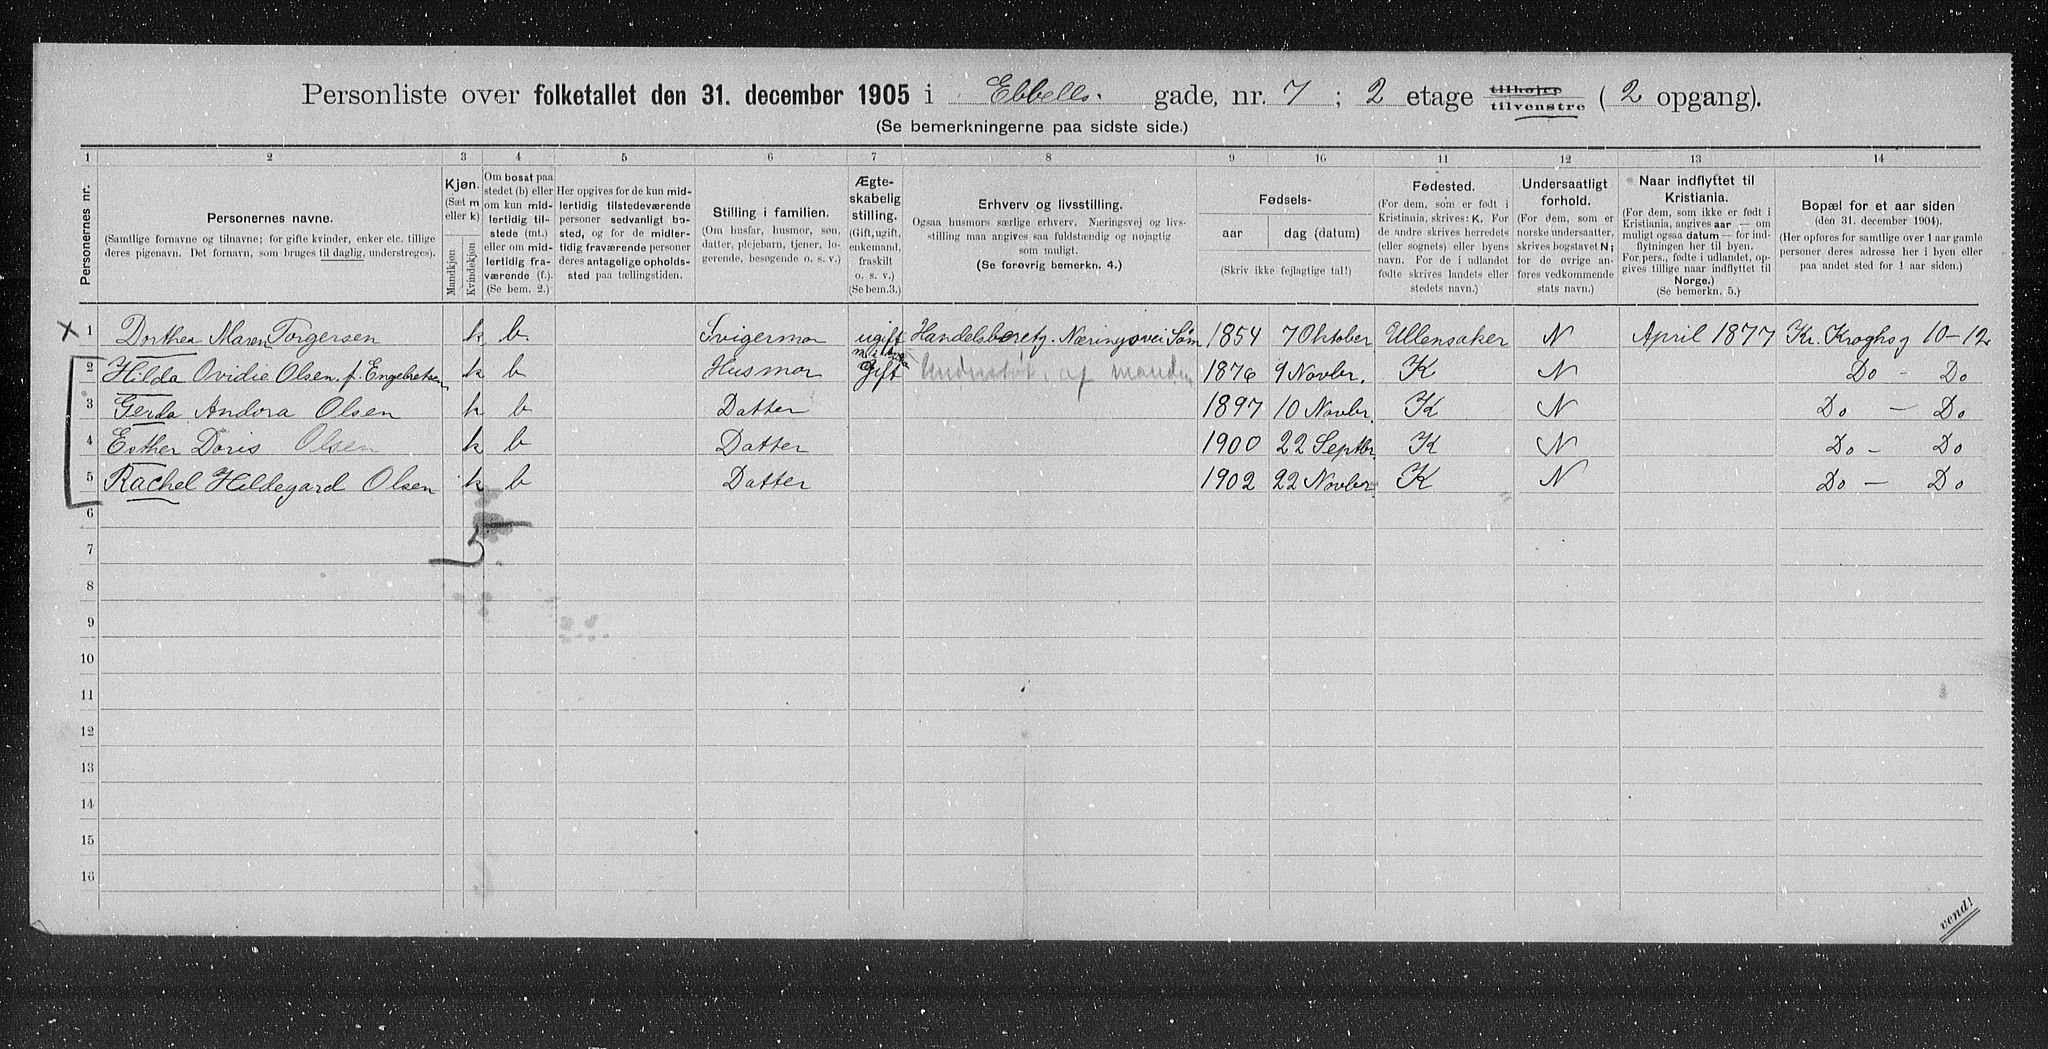 Personliste over folketallet den 31. december 1905 i Ebbells. gade, nr. 7; 2 etage tilhøjre tilvenstre (2 opgang).
(Se bemerkningerne paa sidste side.)
1 2 3 4 5 6 7 8 9 10 11 12 13 14
Personernes nr.
Personernes navne.
(Samtlige fornavne og tilnavne; for gifte kvinder, enker etc. tillige deres pigenavn. Det fornavn, som bruges til daglig, understreges).
Kjøn.
(Sæt m eller k)
Mandkjøn
Kvindekjøn
Om bosat paa stedet (b) eller om kun midlertidig tilstede (mt.) eller om midlertidig fraværende (f.). (Se bem. 2.)
Her opgives for de kun midlertidig tilstedeværende personer sedvanligt bosted, og for de midlertidig fraværende personer deres antagelige opholdssted paa tællingstiden.
Stilling i familien.
(Om husfar, husmor, søn, datter, plejebarn, tjener, logerende, besøgende o. s. v.)
Ægteskabelig stilling.
(Gift, ugift, enkemand, fraskilt o. s. v.) (Se bem. 3.)
Erhverv og livsstilling.
Ogsaa husmors særlige erhverv. Næringsvej og livsstilling maa angives saa fuldstændig og nøjagtig som muligt.
(Se forøvrig bemerkn. 4.)
Fødsels-
aar
dag (datum)
(Skriv ikke fejlagtige tal!)
Fødested.
(For dem, som er født i Kristiania, skrives: K. For de andre skrives herredets (eller sognets) eller byens navn. For de i udlandet fødte skrives landets eller stedets navn.)
Undersaatligt forhold.
(For dem, som er norske undersaatter, skrives bogstavet N; for de øvrige anføres vedkommende stats navn.)
Naar indflyttet til Kristiania.
(For dem, som ikke er født i Kristiania, angives aar — om muligt ogsaa datum — for indflytningen her til byen. For pers., fødte i udlandet, opgives tillige naar indflyttet til Norge.)
(Se bemerkn. 5.)
Bopæl for et aar siden
(den 31. december 1904).
(Her opføres for samtlige over 1 aar gamle personer deres adresse her i byen eller paa andet sted for 1 aar siden.)
1 Dorthea Maren Torgersen k b. Svigermor ugift Handelsboretg. Næringsvei Søm 1854 7 Oktober Ullensaker N April 1877 Kr. Kroghsg 10-12
2 Hilda Ovidie Olsen, f. Engebretsen k b Husmor Gift Understøt. af manden 1876 9 Novbr. K N Do - Do
3 Gerda Andora Olsen k b Datter 1897 10 Novbr. K N Do — Do
4 Esther Doris Olsen k b Datter 1900 22 Septbr. K N Do - Do
5 Rachel Hildegard Olsen k b Datter 1902 22 Novber. K N Do — Do
6
5
7
8
9
10
11
12
13
14
15
16
vend!